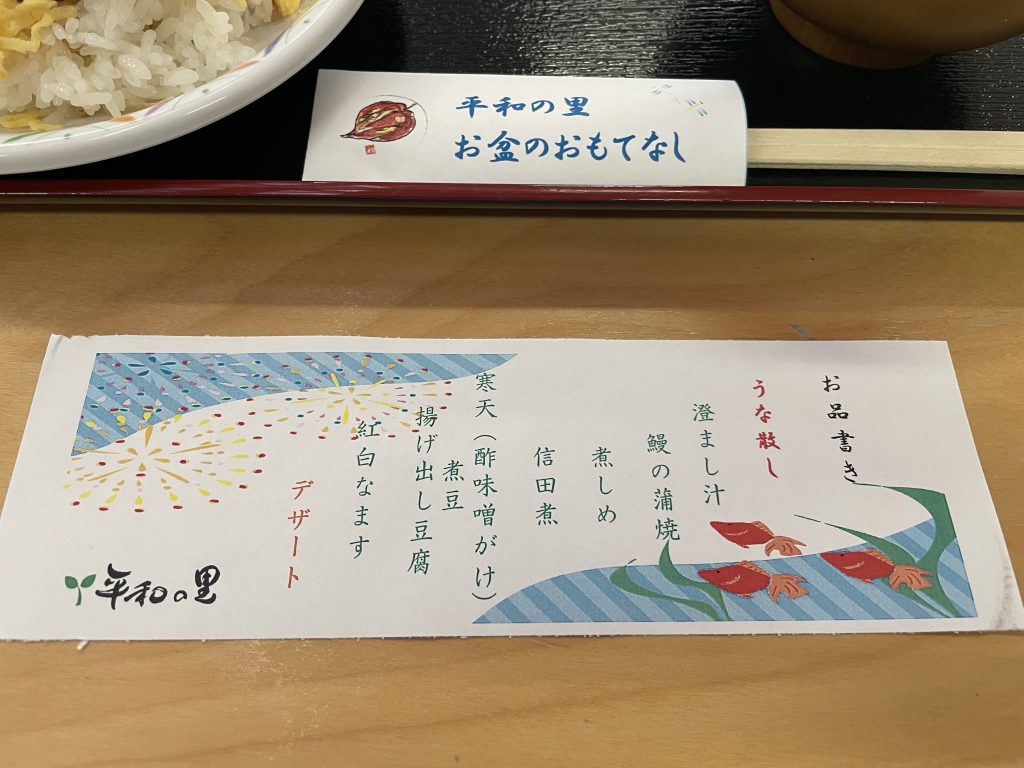 平和の里
お盆のおもてなし
お品書き
うな散し
澄まし汁
鰻の蒲焼
煮しめ
信田煮
寒天（酢味噌がけ）
煮豆
揚げ出し豆腐
紅白なます
デザート
平和の里